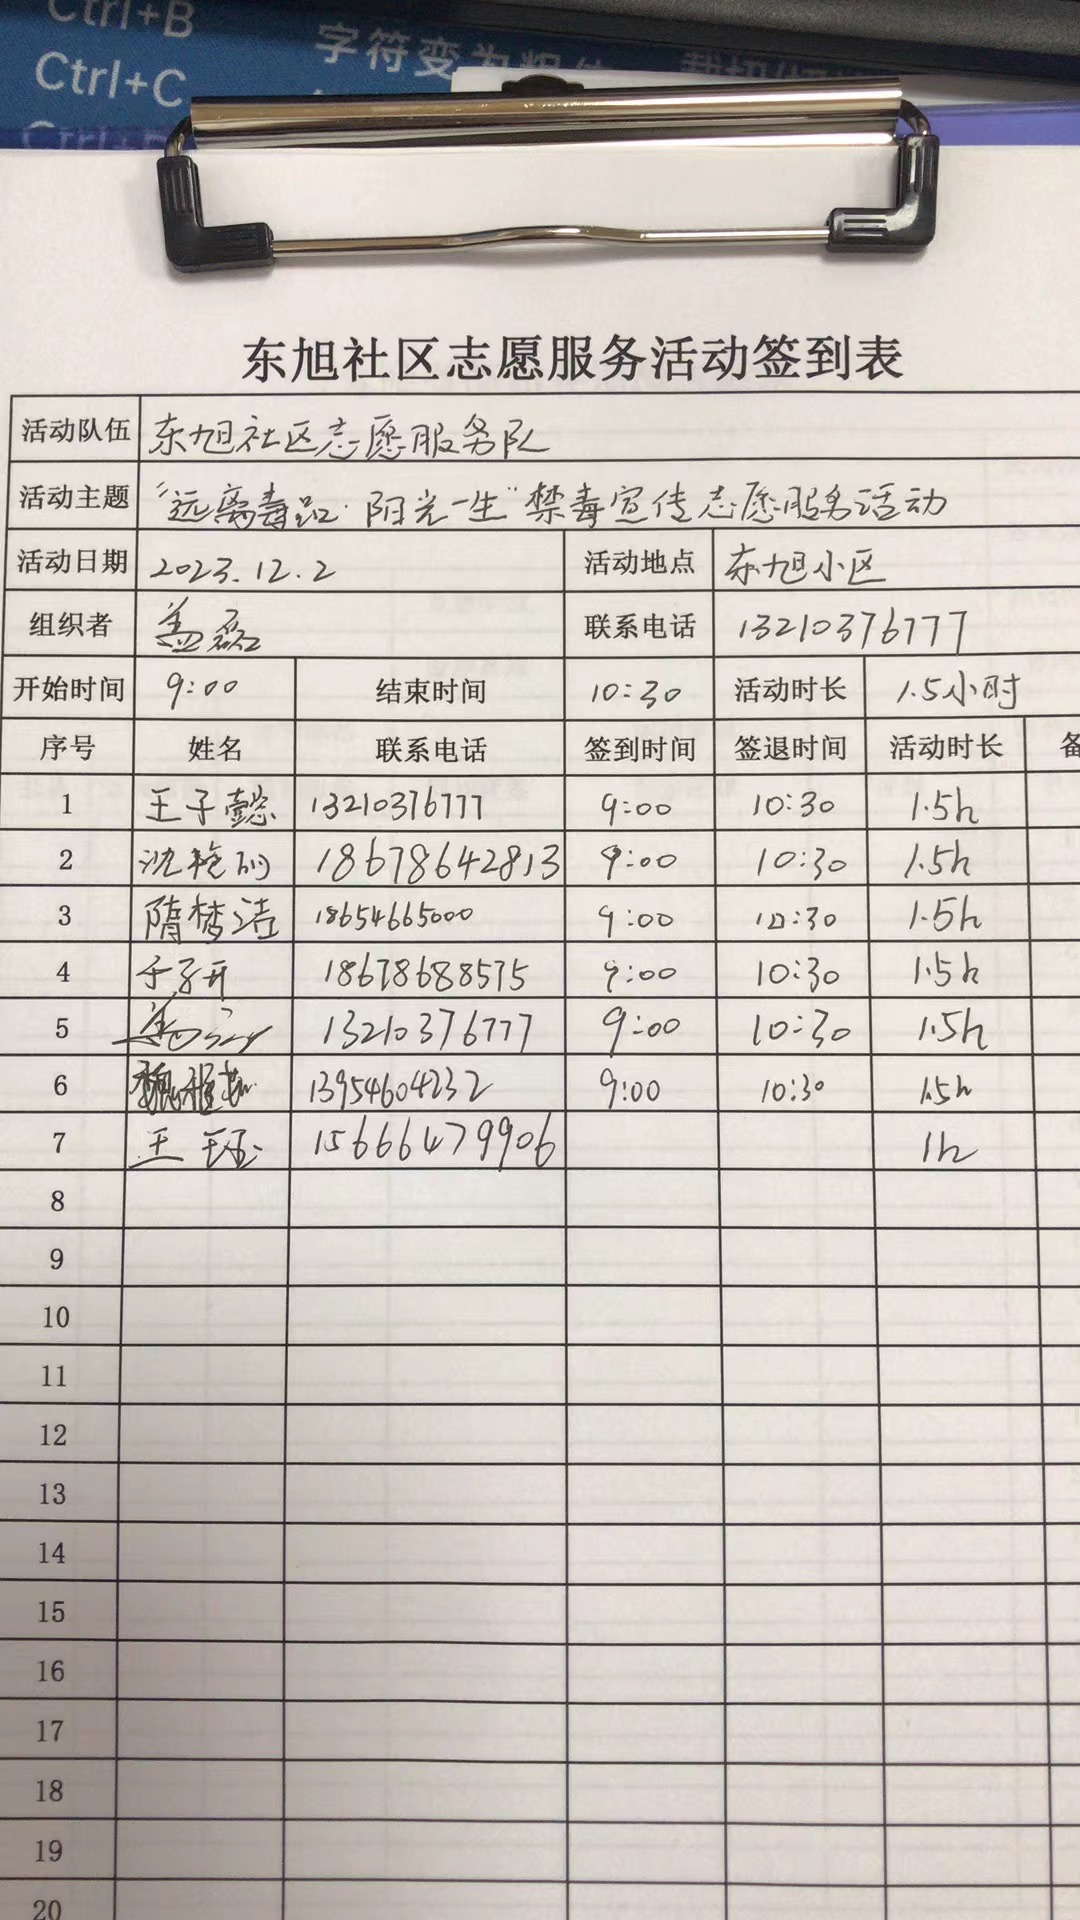 Ctrl+B
字符变为粗体
Ctrl+C
东旭社区志愿服务活动签到表
活动队伍 东旭社区志愿服务队
活动主题 “远离毒品 阳光一生”禁毒宣传志愿服务活动
活动日期 2023.12.2 活动地点 东旭小区
组织者 盖磊 联系电话 13210376777
开始时间 9:00 结束时间 10:30 活动时长 1.5小时
序号 姓名 联系电话 签到时间 签退时间 活动时长 备
1 王子懿 13210376777 9:00 10:30 1.5h
2 18678642813 9:00 10:30 1.5h
3 隋梦洁 18654665000 9:00 10:30 1.5h
4 于子开 18678688575 9:00 10:30 1.5h
5 13210376777 9:00 10:30 1.5h
6 13954604232 9:00 10:30 1.5h
7 王珏 15666479906 1h
8
9
10
11
12
13
14
15
16
17
18
19
20